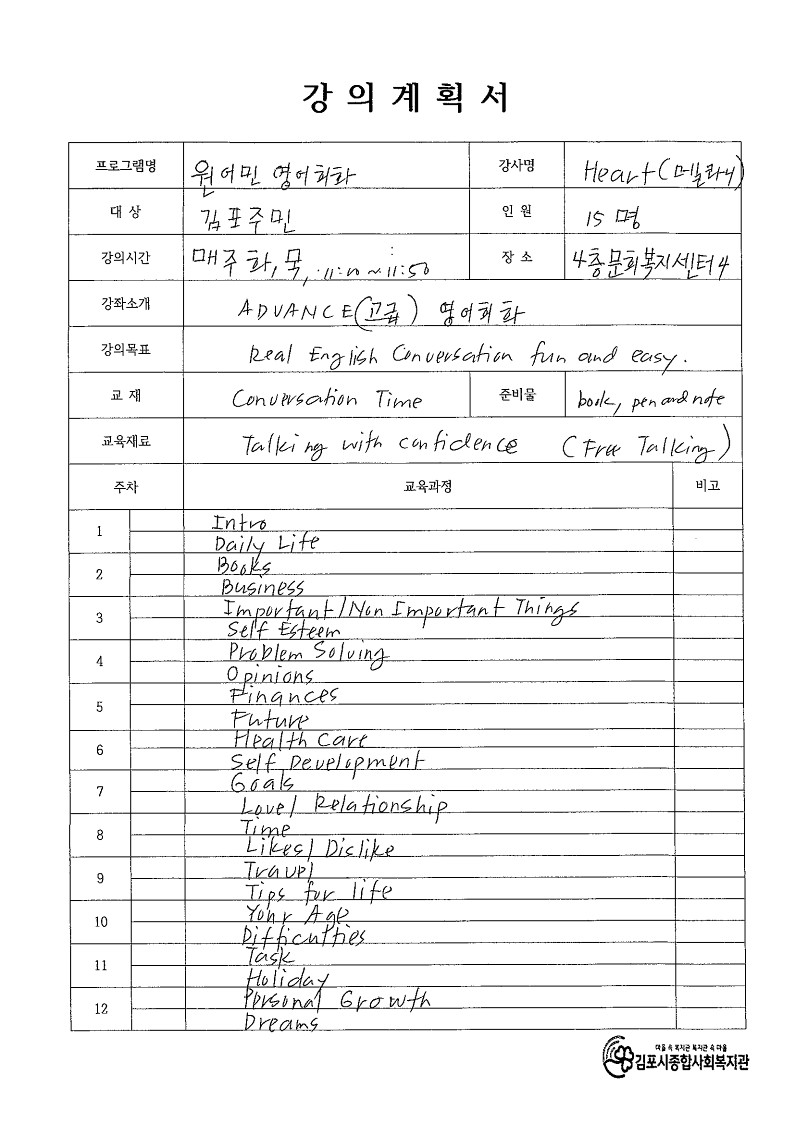 강 의 계 획 서
프로그램명 원어민 영어회화 강사명 Heart(메일라니)
대 상 김포주민 인 원 15명
강의시간 매주 화, 목, 11:00~11:50 장 소 4층문화복지센터4
강좌소개 ADVANCE(고급) 영어회화
강의목표 Real English Conversation fun and easy.
교 재 Conversation Time 준비물 book, pen and note
교육재료 Talking with confidence (Free Talking)
주차 교육과정 비고
1 Intro
Daily Life
2 Books
Business
3 Important/Non Important Things
Self Esteem
4 Problem Solving
Opinions
5 Finances
Future
6 Health Care
Self Development
7 Goals
Love/Relationship
8 Time
Likes/Dislike
9 Travel
Tips for life
10 Your Age
Difficulties
11 Task
Holiday
12 Personal Growth
Dreams
마을 속 복지관 복지관 속 마을
김포시종합사회복지관